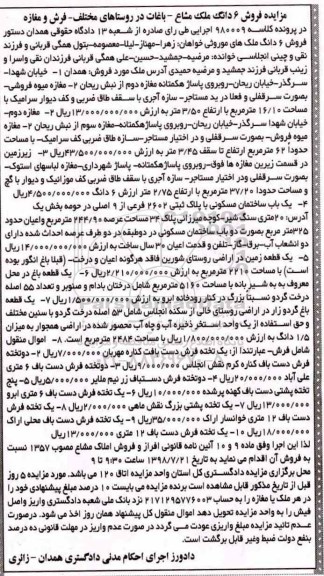 مزایده فروش ۶ دانگ ملک مشاع - باغات در روستاهای مختلف- فرش و مغازه
در پرونده کلاسه ۹۸۰۰۰۹ اجرایی طی رای صادره از شعبه ۱۳ دادگاه حقوقی همدان دستور
فروش ۶ دانگ ملک های موروثی خواهان: زهرا-مهناز-لیلا-معصومه-بتول همگی قربانی و فرزند
نقی و چینی انجلاسی خوانده: مرضیه-جمشید-حسین-علی همگی قربانی فرزندان نقی واسرا و
زینب قربانی فرزند جمشید و مرضیه حمیدی آدرس ملک مورد فروش: همدان ۱- خیابان شهدا-
سرگذر-خیابان ریحان-روبروی پاساژ هکمتانه مغازه دوم از نبش ریحان ۲- مغازه میوه فروشی-
بصورت سرقفلی و فعلا در ید مستاجر- سازه آجری با سقف طاق ضربی و کف دیوار سرامیک با
مساحت ۱۶/۱۰ مترمربع با ارتفاع ۳/۵۰ متر به ارزش ۱۳/۰۰۰/۰۰۰/۰۰۰ریال ۲- مغازه دوم-
خیابان شهدا سرگذر-خیابان ریحان-روبروی پاساژهکمتانه-مغازه سوم از نبش ریحان ۲- مغازه
میوه فروش- بصورت سرقفلی و در اختیار مستاجر -سازه طاق ضربی کف سرامیک- با مساحت
حدوداً ۶۲ مترمربع ارتفاع تا سقف ۳/۴۵ متر به ارزش ۴۳/۵۰۰/۰۰۰/۰۰۰ریال ۳- زیرزمین
در قسمت زیرین مغازه ها فوق-روبروی پاساژهکمتانه- پاساژ شهرداری-مغازه لباسهای استوک-
بصورت سرقفلی ودر اختیار مستاجر- سازه آجری با سقف طاق ضربی کف موزائیک و دیوار با گچ
و مساحت حدودا ۳۷/۲۰ مترمربع با ارتفاع ۲/۷۵ متر ارزش ۶ دانگ ۴/۵۰۰/۰۰۰/۰۰۰ریال
۴- یک باب ساختمان مسکونی با پلاک ثبتی ۲۶۰۲ فرعی از ۹ اصلی در حومه بخش یک
آدرس: ۲۰متری سنگ شیر-کوچه میرزائی پلاک ۳۴ مساحت عرصه ۲۴۴/۹۰ مترمربع واعیان حدود
۳۲۵متر مربع بصورت دو باب ساختمان مسکونی در دوطبقه در دو طرف عرصه احداث شده دارای
دو انشعاب آب-برق-گاز-تلفن و قدمت اعیان ۳۰ سال ساخت به ارزش ۱۴/۰۰۰/۰۰۰/۰۰۰ریال
۵- یک قطعه زمین در اراضی روستای شورین فاقد هرگونه اعیان و درخت- (قبلا باغ انگور بوده
است) با مساحت ۲۲۱۰ مترمربع به ارزش ۲/۲۱۰/۰۰۰/۰۰۰ریال ۶- یک قطعه باغ در محل
معروف به به شیر بابه با مساحت ۵۱۶۰ مترمربع شامل درختان بادام و صنوبر و تعداد ۵۵ اصله
درخت گردو نسبتا بزرگ در کنار رودخانه ابرو به ارزش ۱/۵۰۰/۰۰۰/۰۰۰ریال ۷- یک قطعه
باغ گردو زار در اراضی روستای خالی از سکنه انجلاس شامل ۵۳ اصله درخت گردو با سنین مختلف
و حق استفاده از یک واحد استخر ذخیره آب و چاه آب محصور شده در اراضی همجوار به میزان
۱/۵ دانگ به ارزش ۱/۸۰۰/۰۰۰/۰۰۰ریال با مساحت ۲۴۸۴ مترمربع است. ۸- اموال منقول
شامل فرش-عبارتند از: یک تخته فرش دست بافت کناره مهربان ۷/۰۰۰/۰۰۰ریال ۲- دوتخته
فرش دست باف کناره کرم نقش انجلاس ۱۰/۰۰۰/۰۰۰ریال ۳- دوتخته فرش دست باف ۶ متری
علی آباد ۲۰/۰۰۰/۰۰۰ریال ۴- دوتخته فرش دستباف زر نیم ملایر ۵/۰۰۰/۰۰۰ریال ۵- پنج
تخته پشتی دست باف کهنه پرشده ۱۰/۰۰۰/۰۰۰ریال ۶- یک تخته فرش دست باف ۶ متری ابرو
۱۳/۰۰۰/۰۰۰ریال ۷- یک تخته پشتی بزرگ نقش ماهی ۲/۰۰۰/۰۰۰ریال ۸- یک تخته فرش
دست باف ۱۲ متری خوانسار اراک ۳۵/۰۰۰/۰۰۰ریال ۹- یک تخته فرش دست باف محلی اراک
۱۸/۰۰۰/۰۰۰ریال ۱۰- یک تخته فرش دست باف ۱۲ متری ۱۳/۰۰۰/۰۰۰ریال
لذا این اجرا وفق ماده ۹ و ۱۰ آئین نامه قانونی افراز و فروش املاک مشاع مصوب ۱۳۵۷ نسبت
به فروش آن اقدام می نماید به تاریخ ۱۳۹۸/۷/۲۱ ساعت ۹:۳۰ تا ۹
محل برگزاری مزایده دادگستری کل استان واحد مزایده اتاق ۱۲۰ می باشد. مورد مزایده ۵ روز
قبل از تاریخ مذکور قابل مشاهده است برنده مزایده می بایست ۱۰ درصد مبلغ پیشنهادی خود را
در هر ملک یا مغازه را به حساب ۲۱۷۱۲۹۵۷۷۶۰۰۳ نزد بانک ملی شعبه دادگستری واریز واصل
فیش را به واحد مزایده تحویل دهد اموال منقول کل پیشنهاد همان روز اخذ می شود. درصورت
عدم تائید مزایده مبلغ واریزی عودت می گردد در صورت عدم واریز در مهلت قانونی ده درصد
بنفع دولت ضبط وغیر قابل برگشت است.
دادورز اجرای احکام مدنی دادگستری همدان - زائری